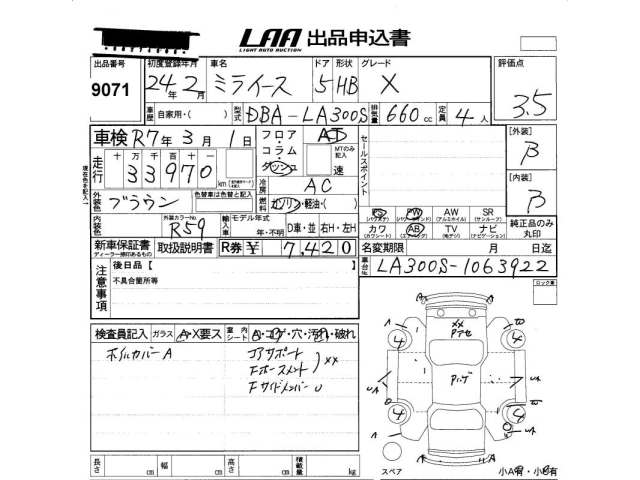 LAA 出品申込書
LIGHT AUTO AUCTION
出品番号 初度登録年月 車名 ドア 形状 グレード 評価点
9071 24年2月 ミライース 5 HB X 3.5
車歴 自家用・( ) 型式 DBA-LA300S 排気量 660 cc 定員 4人
車検 R7年 3月 1日 フロア コラム ダッシュ AT MTのみ記入 速 セールスポイント [外装] B
走行 十 万 千 百 十 一
33970 km
冷房 AC [内装] B
外装色 ブラウン 色替車は色替と記入 燃料 ガソリン・軽油・( )
内装色 外装カラーNo. R59 輸入車 モデル年式 年・不明 D車・並 右H・左H
PS PW AW SR 純正品のみ丸印
(パワステ) (パワーウインド) (アルミホイル) (サンルーフ)
カワ AB TV ナビ
(カワシート) (エアバッグ) (地デジ) (ナビゲーション)
新車保証書 取扱説明書 R券 ¥ 7,420 名変期限 月 日迄
ディーラー捺印あるもの
車台No. LA300S-1063922
注意事項 後日品 [
不具合箇所等
ロック車
検査員記入 ガラス A・X要ス 室内シート A・コゲ・穴・汚れ・破れ
ホイルカバーA
コアサポート
Fホースメント ××
Fサイドメンバー U
××
Pアセ
Pハゲ
4 4
UA 7 UA
4 4
A
長さ cm 幅 cm 高さ cm 積載量 kg
スペア 小A有・小B有